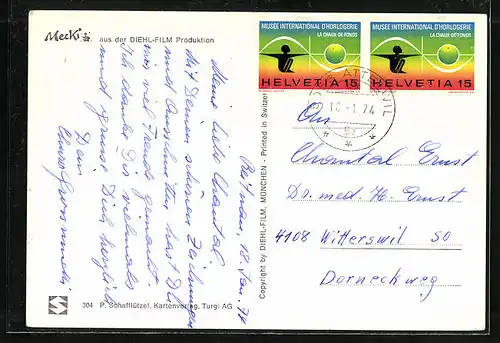 Mecki aus der DIEHL-FILM Produktion
Rätmar, 18. Jan. 74
Meine liebe Chantal
Mit Deinen schönen Zeichnungen
und Ausschnitten hast Du
mir viel Freude gemacht.
Ich danke Dir vielmals
und grüsse Dich herzlich
Dein
304 P. Schafflützel, Kartenverlag, Turgi AG
Copyright by DIEHL-FILM, MÜNCHEN - Printed in Switzer
MUSÉE INTERNATIONAL D'HORLOGERIE
LA CHAUX-DE-FONDS
HELVETIA 15
MUSÉE INTERNATIONAL D'HORLOGERIE
LA CHAUX-DE-FONDS
HELVETIA 15
An
Chantal Ernst
Dr. med. H. Ernst
4108 Witterswil SO
Dorneckweg